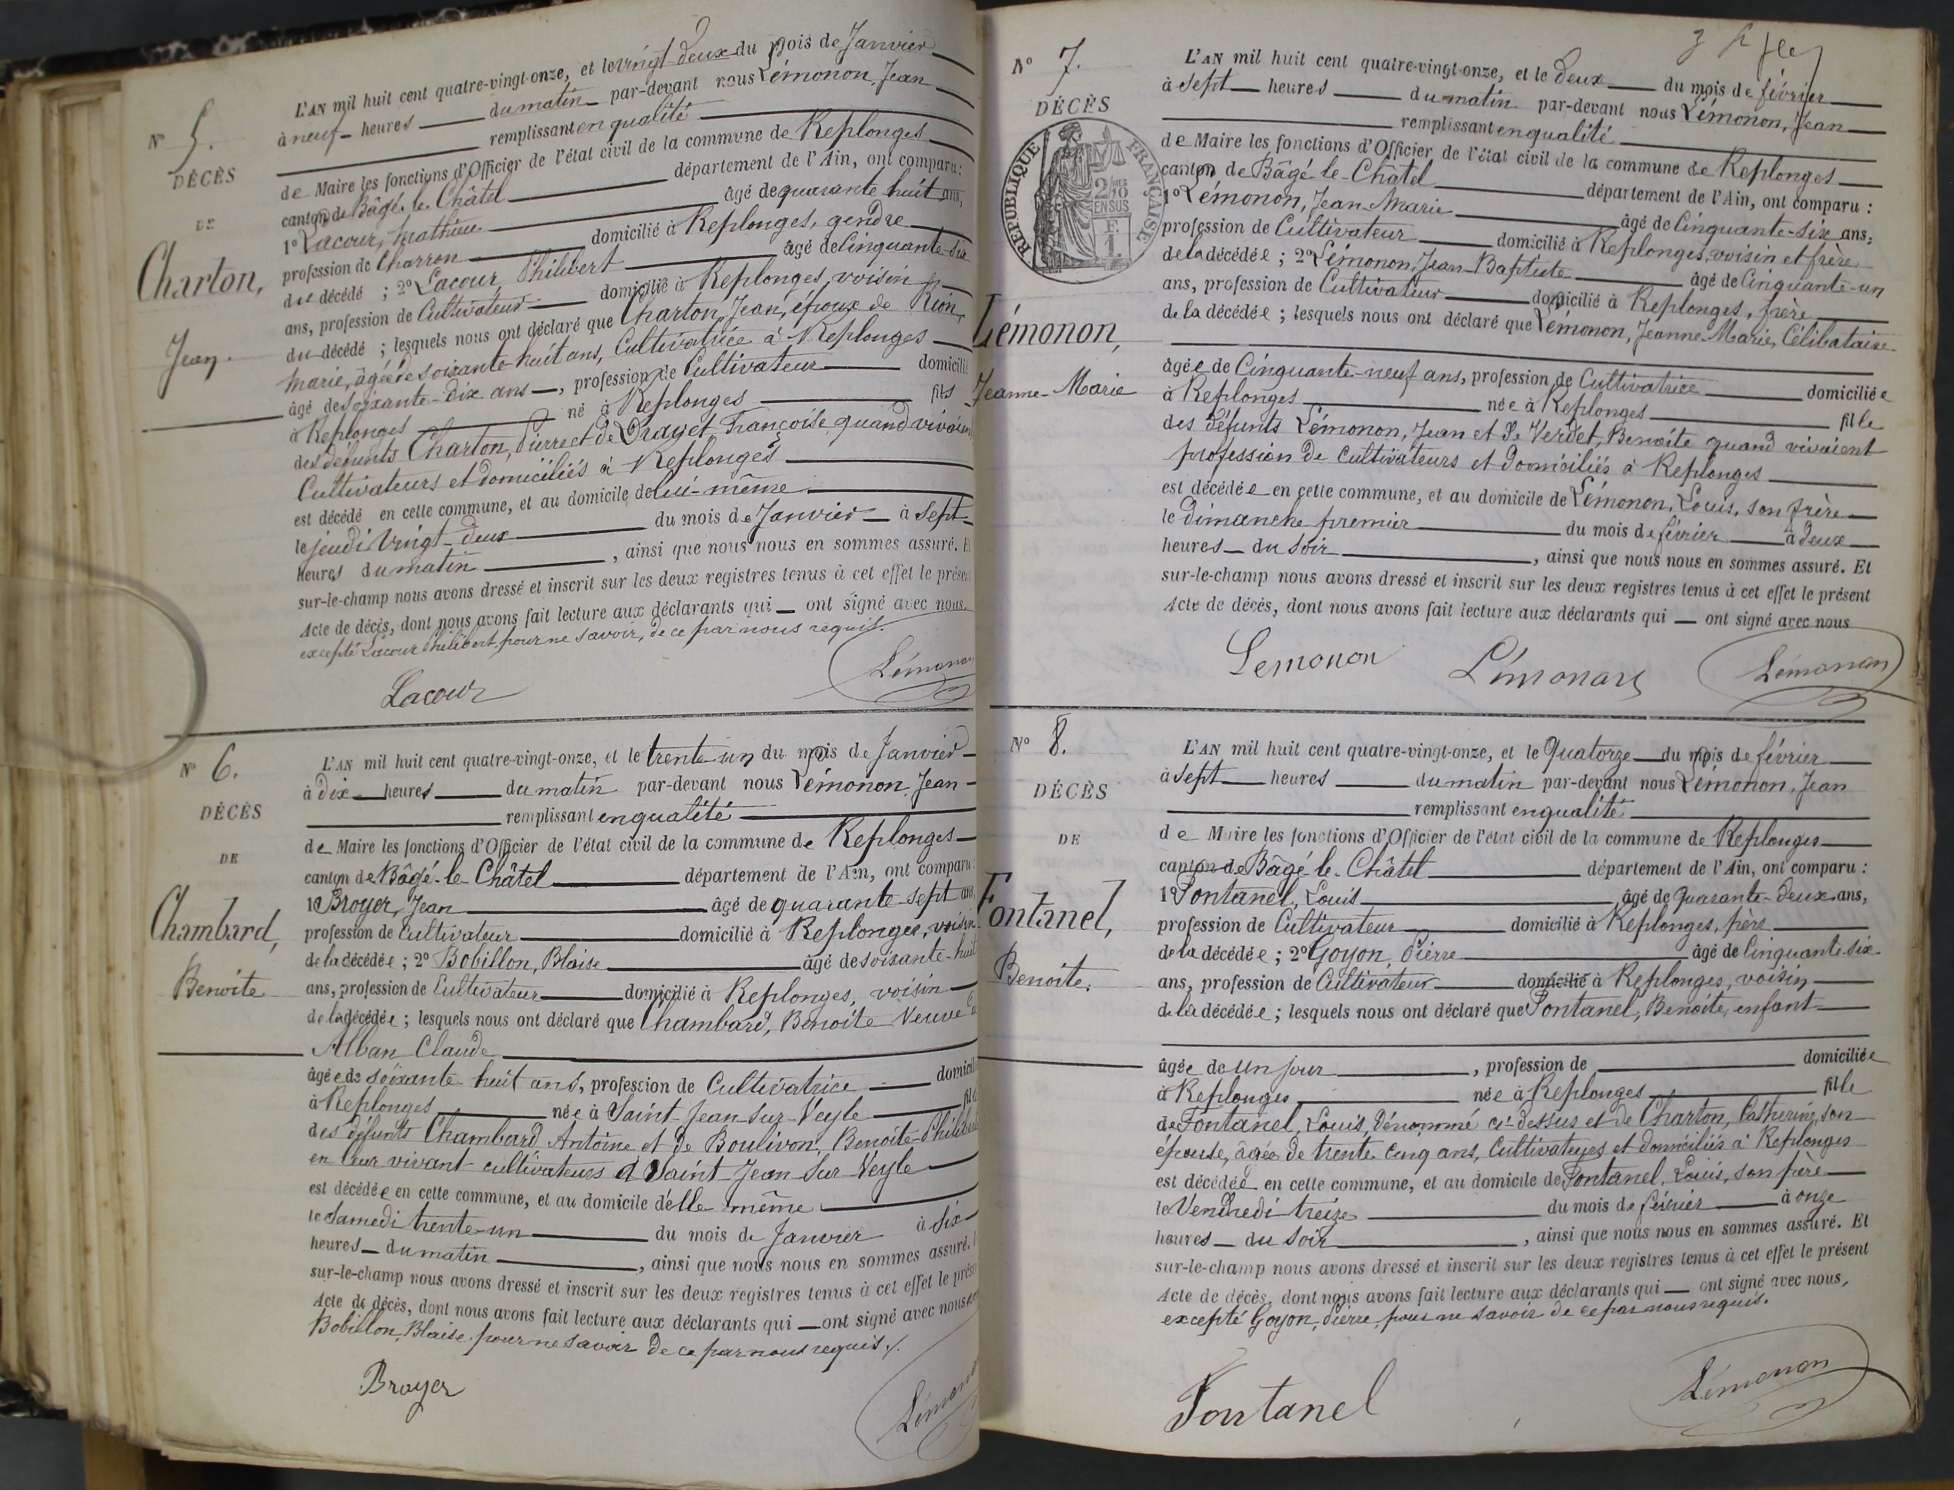 N° 5.
DÉCÈS
DE
Charton,
Jean
L'AN mil huit cent quatre-vingt-onze, et le vingt-deux du mois de Janvier
à neuf heures du matin par-devant nous Lémonon, Jean
remplissant en qualité
de Maire les fonctions d'Officier de l'état civil de la commune de Replonges
canton de Bâgé-le-Châtel département de l'Ain, ont comparu :
1° Lacour, Mathieu âgé de quarante-huit ans,
profession de Charron domicilié à Replonges, gendre
du décédé ; 2° Lacour, Philibert âgé de Cinquante-six
ans, profession de Cultivateur domicilié à Replonges, voisin
du décédé ; lesquels nous ont déclaré que Charton, Jean, époux de
Marie, âgée de soixante-huit ans, Cultivatrice à Replonges
âgé de soixante-dix ans, profession de Cultivateur domicilié
à Replonges né à Replonges fils
des défunts Charton, Pierre et de Françoise quand vivaient
Cultivateurs et domiciliés à Replonges
est décédé en cette commune, et au domicile de lui-même
le jeudi vingt-deux du mois de Janvier à sept
heures du matin , ainsi que nous nous en sommes assuré. Et
sur-le-champ nous avons dressé et inscrit sur les deux registres tenus à cet effet le présent
Acte de décès, dont nous avons fait lecture aux déclarants qui ont signé avec nous,
excepté Lacour Philibert, pour ne savoir, de ce par nous requis.
Lacour Lémonon
N° 6.
DÉCÈS
DE
Chambard,
Benoite
L'AN mil huit cent quatre-vingt-onze, et le trente-un du mois de Janvier
à dix heures du matin par-devant nous Lémonon, Jean
remplissant en qualité
de Maire les fonctions d'Officier de l'état civil de la commune de Replonges
canton de Bâgé-le-Châtel département de l'Ain, ont comparu :
1° Broyer, Jean âgé de quarante-sept ans,
profession de Cultivateur domicilié à Replonges, voisin
de la décédée ; 2° Bobillon, Blaise âgé de soixante-huit
ans, profession de Cultivateur domicilié à Replonges, voisin
de la décédée ; lesquels nous ont déclaré que Chambard, Benoite Veuve de
Alban Claude
âgée de soixante huit ans, profession de Cultivatrice domiciliée
à Replonges née à Saint-Jean-sur-Veyle fille
des défunts Chambard Antoine et de Boulivon, Benoite-Philiberte
en leur vivant cultivateurs à Saint-Jean-sur-Veyle
est décédée en cette commune, et au domicile d'elle même
le Samedi trente-un du mois de Janvier à six
heures du matin , ainsi que nous nous en sommes assuré. Et
sur-le-champ nous avons dressé et inscrit sur les deux registres tenus à cet effet le présent
Acte de décès, dont nous avons fait lecture aux déclarants qui ont signé avec nous
Bobillon, Blaise pour ne savoir de ce par nous requis.
Broyer Lémonon
N° 7.
DÉCÈS
RÉPUBLIQUE FRANÇAISE
2/10 EN SUS
F. 1
Lémonon,
Jeanne-Marie
L'AN mil huit cent quatre-vingt-onze, et le Deux du mois de février
à sept heures du matin par-devant nous Lémonon, Jean
remplissant en qualité
de Maire les fonctions d'Officier de l'état civil de la commune de Replonges
canton de Bâgé-le-Châtel département de l'Ain, ont comparu :
1° Lémonon, Jean-Marie âgé de Cinquante-six ans,
profession de Cultivateur domicilié à Replonges, voisin et frère
de la décédée ; 2° Lémonon, Jean-Baptiste âgé de Cinquante-un
ans, profession de Cultivateur domicilié à Replonges, frère
de la décédée ; lesquels nous ont déclaré que Lémonon, Jeanne-Marie, Célibataire
âgée de Cinquante-neuf ans, profession de Cultivatrice domiciliée
à Replonges née à Replonges fille
des défunts Lémonon, Jean et de Verdet, Benoite quand vivaient
profession de Cultivateurs et domiciliés à Replonges
est décédée en cette commune, et au domicile de Lémonon, Louis, son frère
le dimanche premier du mois de février à deux
heures du soir , ainsi que nous nous en sommes assuré. Et
sur-le-champ nous avons dressé et inscrit sur les deux registres tenus à cet effet le présent
Acte de décès, dont nous avons fait lecture aux déclarants qui ont signé avec nous
Lemonon Lémonon Lémonon
N° 8.
DÉCÈS
DE
Fontanel,
Benoite.
L'AN mil huit cent quatre-vingt-onze, et le Quatorze du mois de février
à sept heures du matin par-devant nous Lémonon, Jean
remplissant en qualité
de Maire les fonctions d'Officier de l'état civil de la commune de Replonges
canton de Bâgé-le-Châtel département de l'Ain, ont comparu :
1° Fontanel, Louis âgé de quarante-deux ans,
profession de Cultivateur domicilié à Replonges, père
de la décédée ; 2° Goyon, Pierre âgé de Cinquante-six
ans, profession de Cultivateur domicilié à Replonges, voisin
de la décédée ; lesquels nous ont déclaré que Fontanel, Benoite, enfant
âgée de un jour , profession de domiciliée
à Replonges née à Replonges fille
de Fontanel, Louis, dénommé ci-dessus et de Charton, Catherine, son
épouse, âgée de trente cinq ans, Cultivateurs et domiciliés à Replonges
est décédée en cette commune, et au domicile de Fontanel, Louis, son père
le Vendredi treize du mois de février à onze
heures du soir , ainsi que nous nous en sommes assuré. Et
sur-le-champ nous avons dressé et inscrit sur les deux registres tenus à cet effet le présent
Acte de décès, dont nous avons fait lecture aux déclarants qui ont signé avec nous,
excepté Goyon, Pierre, pour ne savoir de ce par nous requis.
Fontanel Lémonon